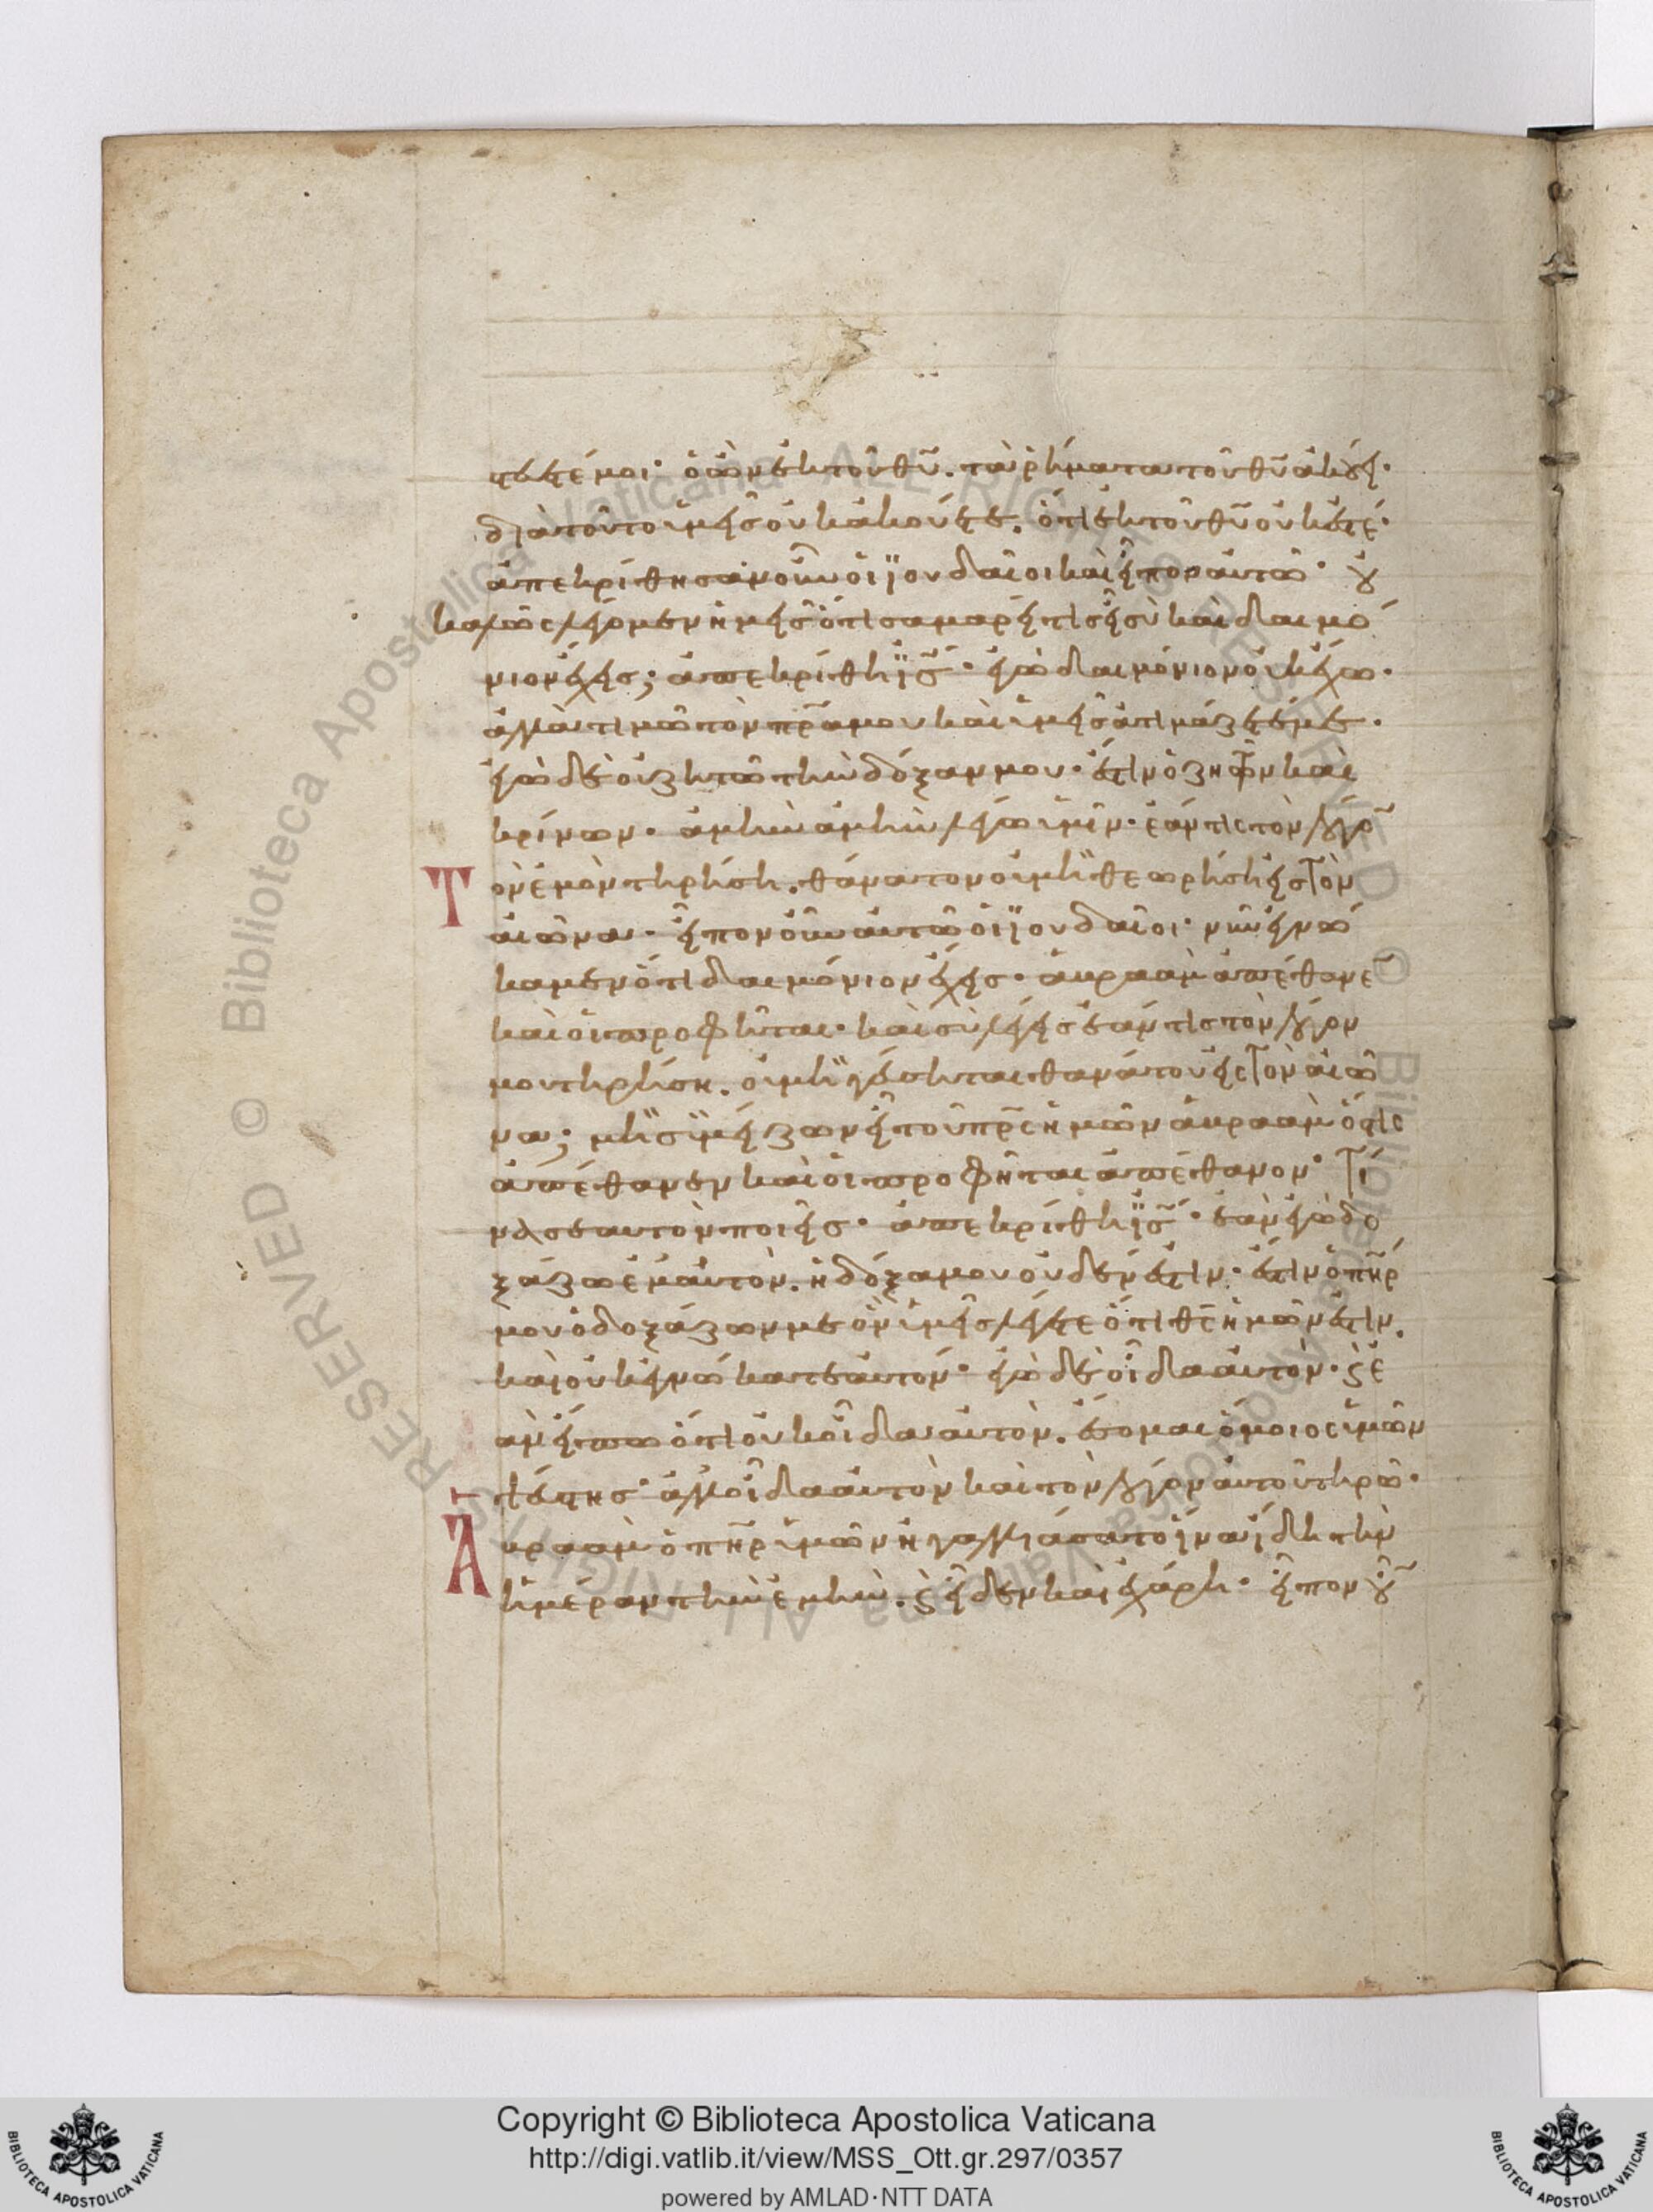 τεύετέ μοι· ὁ ὢν ἐκ τοῦ θυ̅. τὰ ῥήματα τοῦ θυ̅ ἀκούει·
διὰ τοῦτο ὑμεῖς οὐκ ἀκούετε. ὅτι ἐκ τοῦ θυ̅ οὐκ ἐστέ·
ἀπεκρίθησαν οὖν οἱ ϊουδαῖοι καὶ εἶπον αὐτῶ· οὐ
καλῶς λέγομεν ἡμεῖς ὅτι σαμαρείτις εἶ σὺ καὶ δαιμό
νιον ἔχεις; ἀπεκρίθη ϊς̅· ἐγὼ δαιμόνιον οὐκ ἔχω·
ἀλλὰ τιμῶ τὸν πρ̅α μου καὶ ὑμεῖς ἀτιμάζετέ με·
ἐγὼ δὲ οὐ ζητῶ τὴν δόξαν μου· ἔστιν ὁ ζητῶν καὶ
κρίνων· ἀμὴν ἀμὴν λέγω ὑμῖν· ἐάν τις τὸν λόγον
Τ
ὸν ἐμὸν τηρήση. θάνατον οὐ μὴ θεωρήση εἰς τὸν
αἰῶνα· εἶπον οὖν αὐτῶ οἱ ϊουδαῖοι· νῦν ἐγνώ
καμεν ὅτι δαιμόνιον ἔχεις· ἀβραὰμ ἀπέθανε
καὶ οἱ προφῆται· καὶ σὺ λέγεις ἐάν τις τὸν λόγον
μου τηρήση. οὐ μὴ γεύσηται θανάτου εἰς τὸν αἰῶ
να; μὴ σὺ μείζων εἶ τοῦ πρ̅ς ἡμῶν ἀβραὰμ ὅστις
ἀπέθανεν καὶ οἱ προφῆται ἀπέθανον· τί
να σεαυτὸν ποιεῖς· ἀπεκρίθη ϊς̅· ἐὰν ἐγὼ δο
ξάζω ἐμαυτόν. ἡ δόξα μου οὐδέν ἐστιν· ἔστιν ὁ πη̅ρ
μου ὁ δοξάζων με ὃν ὑμεῖς λέγετε ὅτι θς̅ ἡμῶν ἐστιν.
καὶ οὐκ ἐγνώκατε αὐτόν· ἐγὼ δὲ οἶδα αὐτόν· ϗ ἐ
ὰν εἴπω ὅτι οὐκ οἶδα αὐτόν. ἔσομαι ὅμοιος ὑμῶν
ψεύστης· ἀλλ' οἶδα αὐτὸν καὶ τὸν λόγον αὐτοῦ τηρῶ·
Α
βραὰμ ὁ πη̅ρ ὑμῶν ἠγαλλιάσατο ἵνα ἴδη τὴν
ἡμέραν τὴν ἐμήν. ϗ εἶδεν καὶ ἐχάρη· εἶπον οὖν
Copyright © Biblioteca Apostolica Vaticana
http://digi.vatlib.it/view/MSS_Ott.gr.297/0357
powered by AMLAD·NTT DATA
BIBLIOTECA APOSTOLICA VATICANA
BIBLIOTECA APOSTOLICA VATICANA